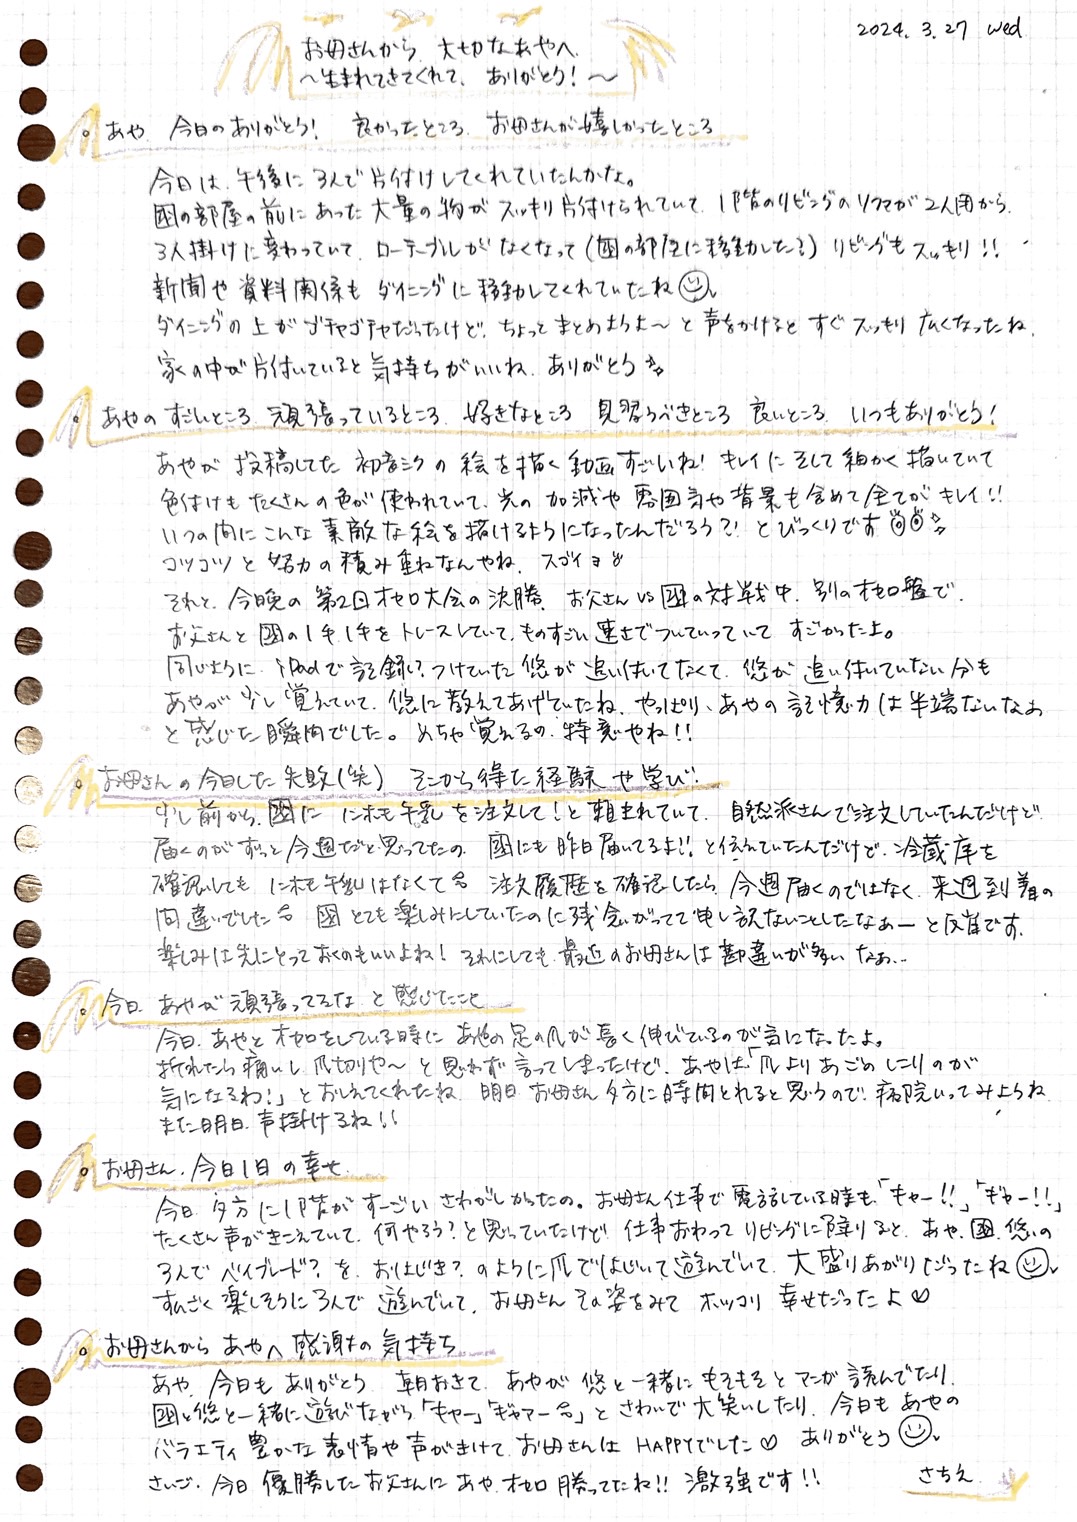 2024. 3. 27 wed
お母さんから 大切なあやへ
〜生まれてきてくれて、ありがとう！〜
。あや 今日のありがとう！ 良かったところ お母さんが嬉しかったところ
今日は、午後に3人で片付けしてくれていたんかな。
圏の部屋の前にあった大量の物がスッキリ片付けられていて、1階のリビングのソファが2人用から
3人掛けに変わっていて、ローテーブルがなくなって（圏の部屋に移動した？）リビングもスッキリ！！
新聞や資料関係もダイニングに移動してくれていたね
ダイニングの上がゴチャゴチャだったけど、ちょっとまとめようよ〜と声をかけるとすぐスッキリ広くなったね。
家の中が片付いていると気持ちがいいね。ありがとう
。あやのすごいところ 頑張っているところ 好きなところ 見習うべきところ 良いところ いつもありがとう！
あやが投稿してた初音ミクの絵を描く動画すごいね！キレイにそして細かく描いていて
色付けもたくさんの色が使われていて、光の加減や雰囲気や背景も含めて全てがキレイ！！
いつの間にこんな素敵な絵を描けるようになったんだろう？！とびっくりです
コツコツと努力の積み重ねなんやね。スゴイョ
それと、今晩の第2回オセロ大会の決勝、お父さんvs圏の対戦中、別のオセロ盤で、
お父さんと圏の1手1手をトレースしていて、ものすごい速さでついていっていてすごかったよ。
同じように、iPadで記録つけていた悠が追い付いてなくて、悠が追い付いていない分も
あやが少し覚えていて、悠に教えてあげていたね。やっぱり、あやの記憶力は半端ないなぁ
と感じた瞬間でした。めちゃ覚えるの特意やね！！
。お母さんの今日した失敗（笑） そこから得た経験や学び
少し前から、圏に にホモ牛乳を注文して！と頼まれていて、自然派さんで注文していたんだけど
届くのがずっと今週だと思ってたの。圏にも昨日届いてるよ！！と伝えていたんだけど、冷蔵庫を
確認しても にホモ牛乳はなくて 注文履歴を確認したら、今週届くのではなく、来週到着の
間違いでした 圏とても楽しみにしていたのに残念がってて申し訳ないことしたなぁーと反省です。
楽しみは先にとっておくのもいいよね！それにしても、最近のお母さんは勘違いが多いなぁ…
。今日、あやが頑張ってるなと感じたこと
今日、あやとオセロをしている時にあやの足の爪が長く伸びているのが気になったよ。
折れたら痛いし爪切りや〜と思わず言ってしまったけど、あやは「爪よりあごのしこりのが
気になるわ！」とおしえてくれたね。明日、お母さん夕方に時間とれると思うので、病院いってみようね
また明日、声掛けるね！！
。お母さん、今日1日の幸せ
今日、夕方に1階がすーごいさわがしかったの。お母さん仕事で電話している時も、「キャー！！」「ギャー！！」
たくさん声がきこえていて、何やろう？と思っていたけど、仕事おわってリビングに降りると、あや、圏、悠の
3人でベイブレード？を、おはじき？のように爪ではじいて遊んでいて、大盛りあがりだったね
すんごく楽しそうに3人で遊んでいて、お母さんその姿をみてホッコリ幸せだったよ♡
。お母さんからあやへ感謝の気持ち
あや、今日もありがとう 朝おきて、あやが悠と一緒にもそもそとマンガ読んでたり、
圏と悠と一緒に遊びながら「キャー」「ギャアー」とさわいで大笑いしたり、今日もあやの
バラエティ豊かな表情や声がきけて、お母さんはHAPPYでした♡ ありがとう
さいご、今日優勝したお父さんにあやオセロ勝ってたね！！激強です！！
さちえ